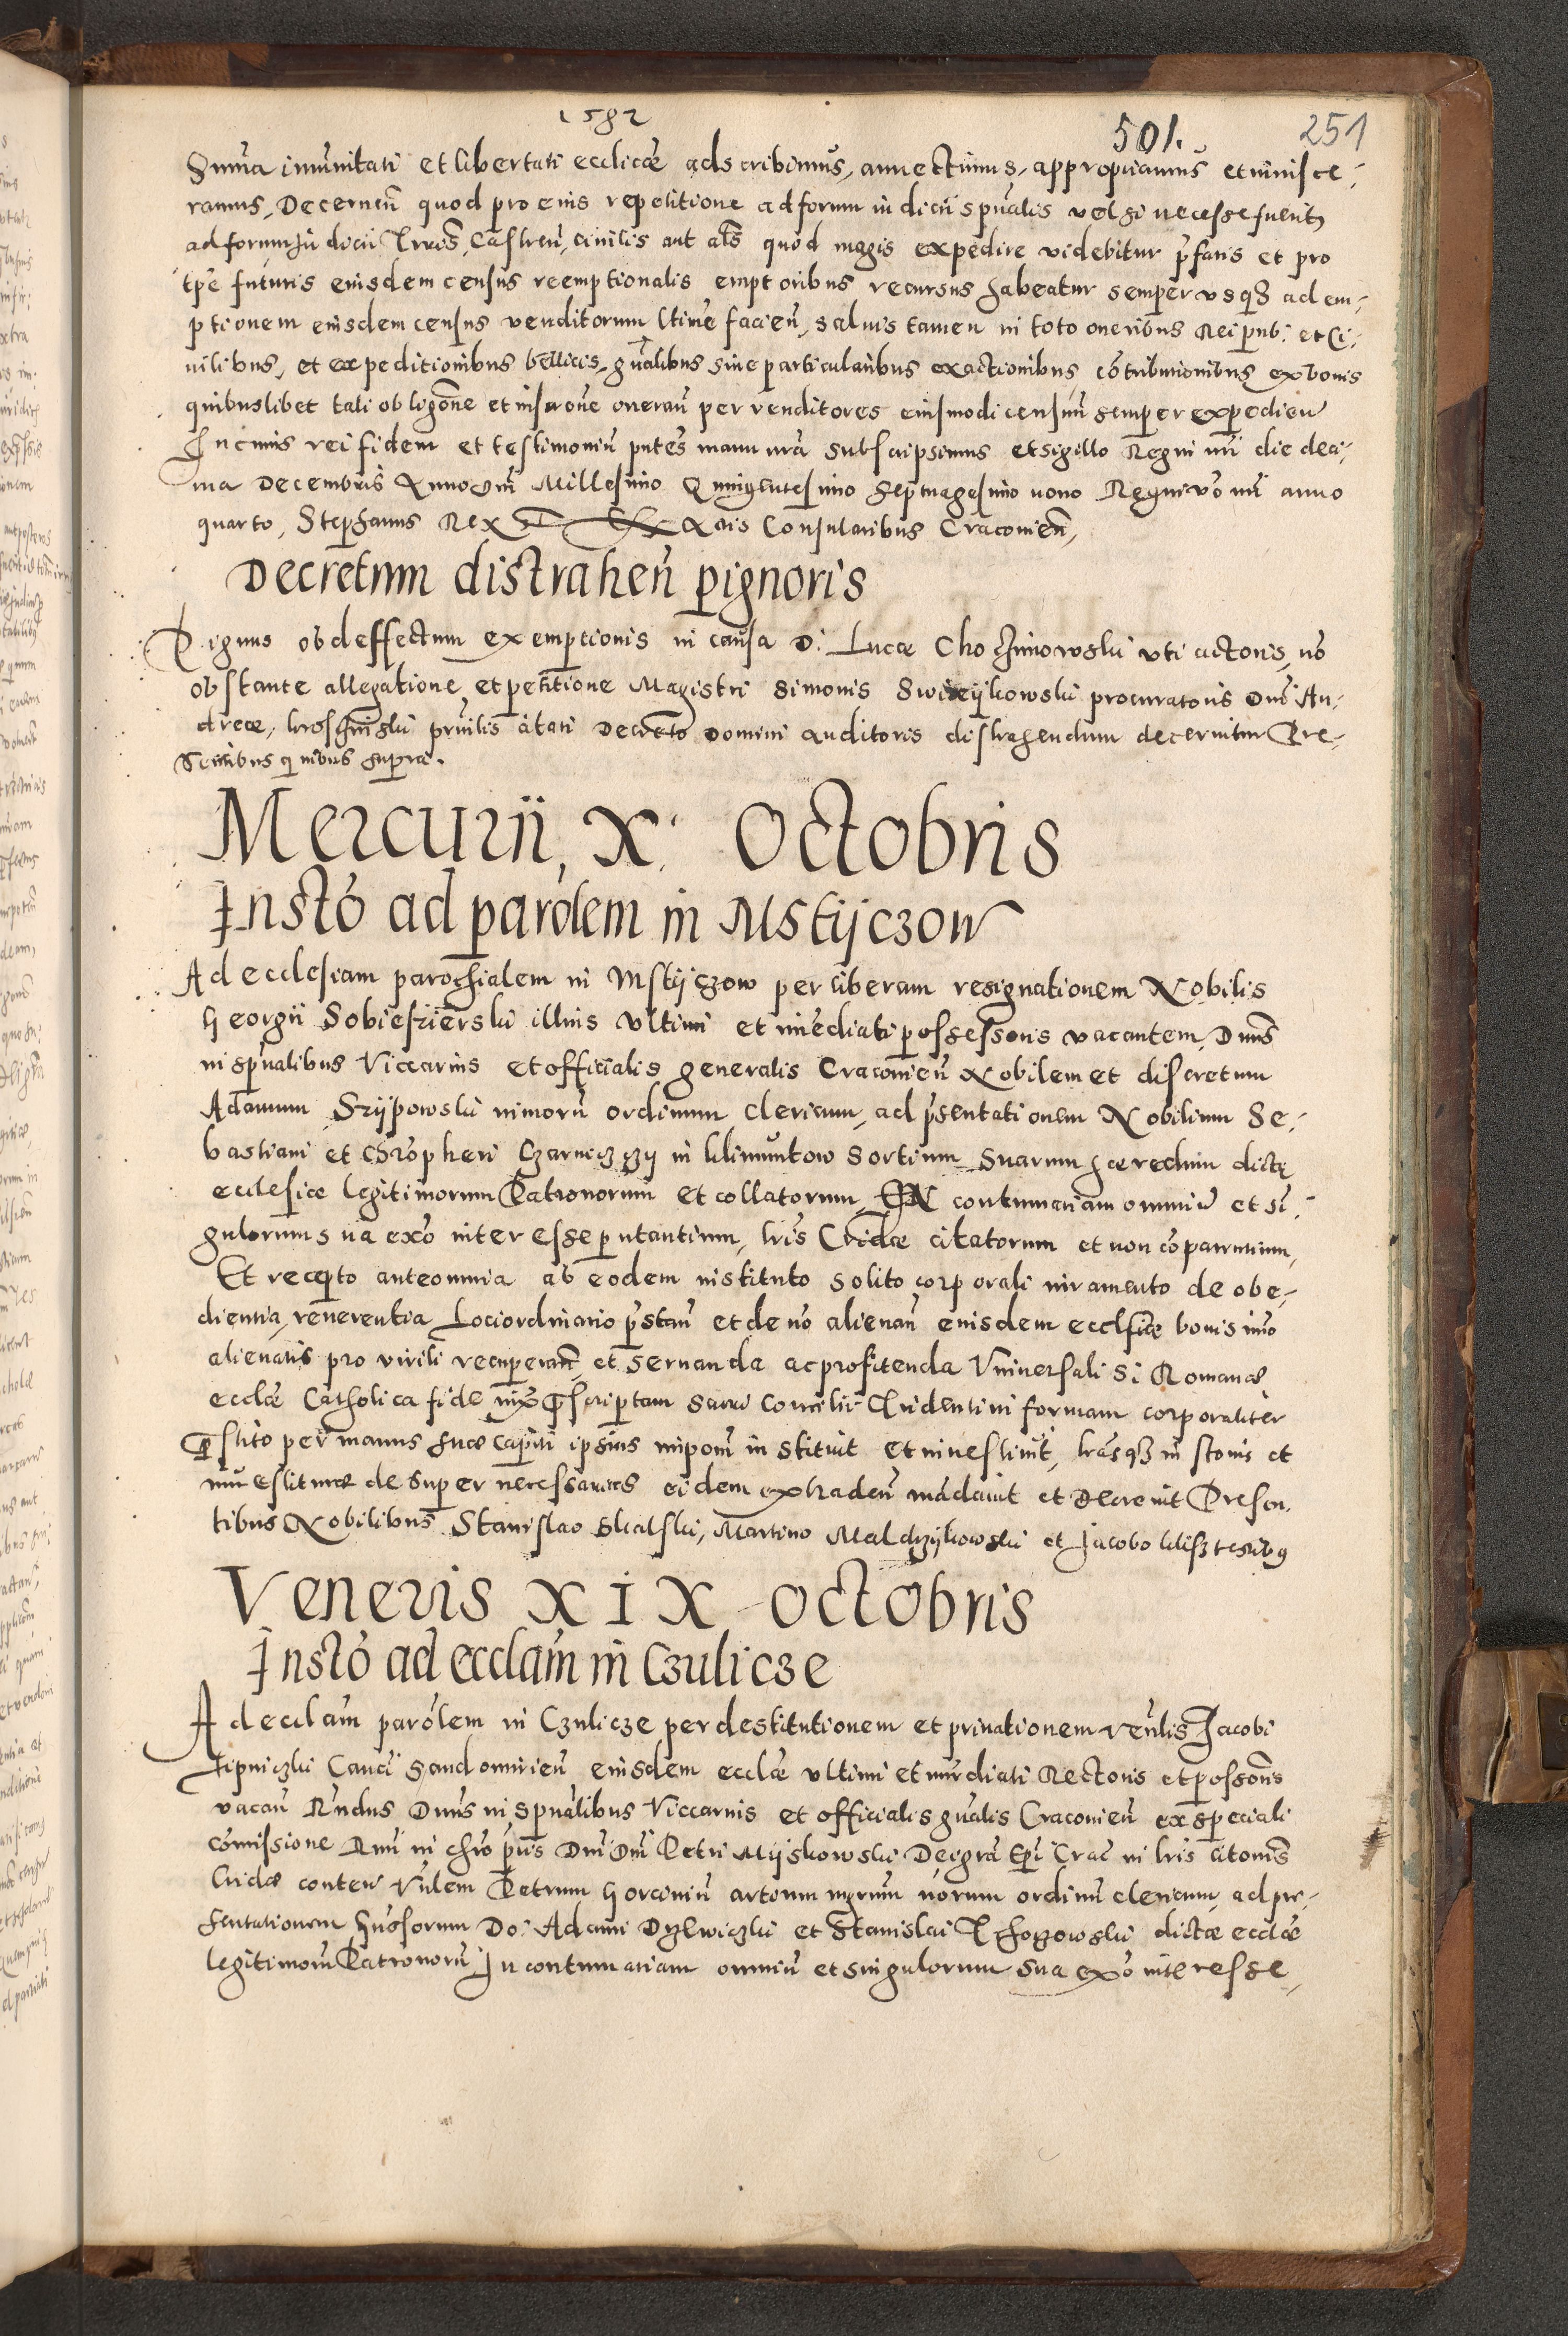 1582
501. 251
Summa imunitati et libertati ecclicae adscribimus, annectimus, appropriamus et inisce-
ramus, Decernen̄ quod pro eius repetitione ad forum iudicii spūalis vel si necesse fuerit
ad forum iudicii Trris, Castren̄, civilis aut als quod magis expedire videbitur p̄fatis et pro
tpe futuris eiusdem census reemptionalis emptoribus recursus habeatur semper usq3 ad em-
ptionem eiusdem census venditorum ltime facien̄, salvis tamen in toto oneribus Reipub: et Ci-
vilibus, et expeditionibus bellicis, gñalibus sive particularibus exactionibus cōtributionibus ex bonis
quibuslibet tali obligōne et inscrōne oneran̄ per venditores eiusmodi censum semper expedien̄
In cuius rei fidem et testimoniū pntes manu nrā subscripsimus et sigillo Regni nri die deci-
ma Decembris Anno Dni Millesimo Quingentesimo Septuagesimo nono Regni vō nri anno
quarto, Stephanus Rex Ex Actis Consularibus Cracovien̄,
Decretum distrahen̄ pignoris
Pignus ob deffectum exemptionis in causa D: Lucae Chozimowski uti actoris, nō
obstante allegatione et petitione Magistri Simonis Swieykowski procuratoris Dni An-
dreae, principalis citati Decreto Domini Auditoris distrahendum decernitur Pre-
sentibus quibus supra.
Mercurii, X: Octobris
Instō ad parōlem in Mstyczow
Ad ecclesiam parochialem in Mstyczow per liberam resignationem Nobilis
Georgii Sobiesierski illius ultimi et imediati possessoris vacantem, Dnus
in spūalibus Viccarius et officialis generalis Cracovien̄ Nobilem et discretum
Adamum Szypowski minorū ordinum clericum, ad p̄sentationem Nobilium Se-
bastiani et Chrōpheri Czarniczzy in Klimuntow sortium suarum haeredum dictę
ecclesiae legitimorum Patronorum et collatorum, IN contumaciam omniū et sin-
gulorum sua exō interesse putantium, lris Cridae citatorum et non cōparentium,
Et recepto anteomnia ab eodem instituto solito corporali iuramento de obe-
dientia, reverentia Loci ordinario p̄stan̄ et de nō alienan̄ eiusdem ecclsiae bonis imo
alienatis pro virili recuperan̄, et servanda ac profitenda Universali Si Romanae
ecclae Catholica fide iux p̄scriptam sacri Concilii Tridentini formam corporaliter
p̄stito per manus suae capiti ipsius imponi instituit et investivit, lrasq3 in stonis et
investiturae desuper necessarias eidem extraden̄ mandavit et decrevit Presen-
tibus Nobilibus Stanislao Skalski, Martino Maldzykowski et Jacobo Klisz testibus
Veneris XIX Octobris
Instō ad ecclām in Czulicze
Ad ecclām parōlem in Czulicze per destitutionem et privationem venlis Jacobi
Lipniczki Canci Sandomirien̄ eiusdem ecclae ultimi et imediati Rectoris et possoris
vacan̄ Rndus Dnus in spūalibus Viccarius et officialis gñalis Cracovien̄ ex speciali
cōmissione Rmi in chrō pris Dni Dni Petri Myskowski Dei grā Epi Crac in lris Citonis
Cridae conten̄ Vnlem Petrum Gorciniū artium mgrum norum ordinū clericum, ad pre-
sentationem Gnsorum Do: Adami et Stanislai dictae ecclae
legitimorū Patronorū In contumaciam omniū et singulorum sua exō interesse,